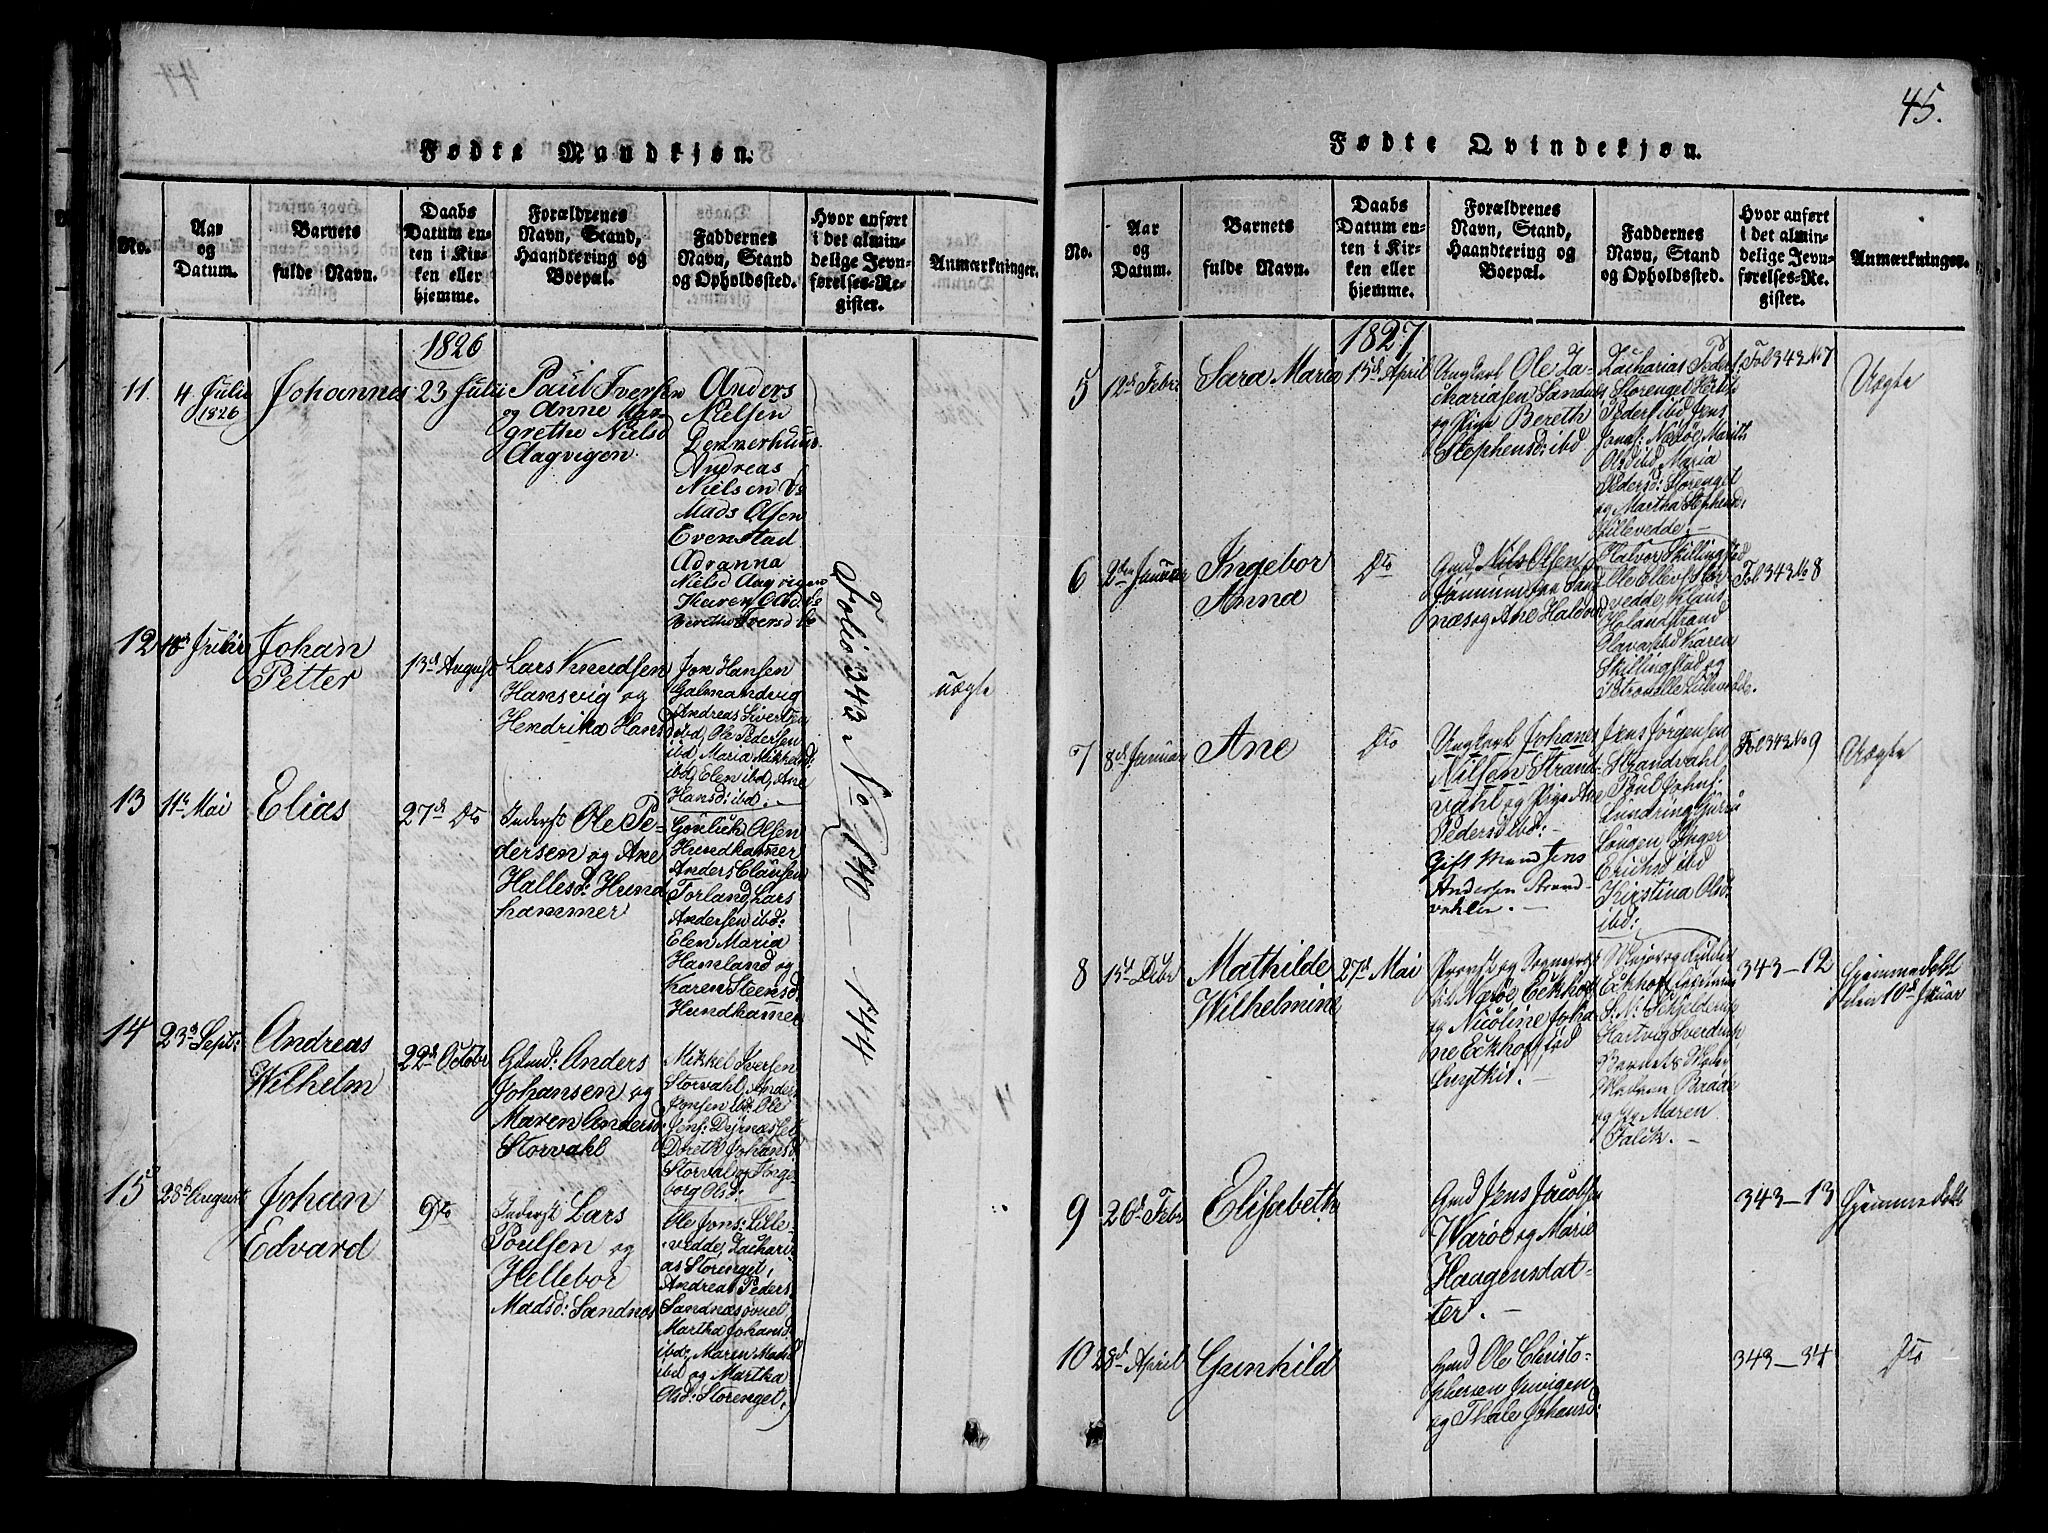 45.
Fødte Mandkjøn.
No.
Aar
og
Datum.
Barnets
fulde Navn.
Daabs
Datum en-
ten i Kir-
ken eller
hjemme.
Forældrenes
Navn, Stand,
Haandtering og
Boepæl.
Faddernes
Navn, Stand
og Opholdssted.
Hvor anført
i det almin-
delige Jevn-
førelses-Re-
gister.
Anmærkninger.
1826
11.
4 Julii
1826
Johannes
23 Julii
Paul Iversen
og Anne Mar-
grethe Nielsd
Aagvigen
Anders
Nielsen
Dennerhuus
Andreas
Nielsen Ds
Mads Olsen
Evenstad
Adranna
Nielsd Aagvigen
Karen Olsd. Ds
Berethe Iversd Ds
Folio 343 No 140 – 144
12
Julii
Johan
Petter
13d August
Lars Knudsen
Hansvig og
Hendrika Hansd
Jon Hansen
Galmandvig
Andreas Sivertsen
ibd, Ole Pedersen
ibd, Maria Mikkelsd:
ibd, Elen ibd, Ane
Hansd: ibd.
uægte
13
11te Mai
Elias
27d Do
Inderst Ole Pe-
dersen og Ane
Hallesd: Hund
hammer
Gönlich Olsen
Hundhamer
Anders Clausen
Torland, Lars
Andersen ibd:
Elen Maria
Hamland og
Karen Steensd
Hundhamer
14
23d Sept:
Andreas
Wilhelm
22d Octobr
Gmd: Anders
Johansen og
Maren Andersd:
Storvahl
Mikkel Iversen
Storvahl, Anders
Jonsen ibd. Ole
Jens: Dyrnæsset
Dorethe Johansd
Storval og Inge
borg Olsd:
15
28d August
Johan
Edvard
Do
Inderst Lars
Poulsen og
Hellebor
Madsd: Sandnæs
Ole Jons: Lille-
vedde, Zachari-
as Storenget,
Andreas Peders
Sandnæs
Martha Johansd:
ibd, Maren Madsd
ibd og Martha
Olsd: Storenget,
Fødte Qvindekjøn.
No.
Aar
og
Datum.
Barnets
fulde Navn.
Daabs
Datum en-
ten i Kir-
ken eller
hjemme.
Forældrenes
Navn, Stand,
Haandtering og
Boepæl.
Faddernes
Navn, Stand
og Opholdssted.
Hvor anført
i det almin-
delige Jevn-
førelses-Re-
gister.
Anmærkninger.
1827
5
12d Febr
Sara Maria
15d April
Ungkarl Ole Za-
chariasen Sandnæs
og Pige Bereth
Stephensd: ibd
Zacharias Peders
Storenget
Peders ibd Jens
Jonas: Nærøe, Marith
Olsd ibd, Maria
Pedersd: Storenget
og Martha Stephensd:
Lillevedde. –
Fol 343 No 7
Uægte
6
2den Januar
Ingebor
Anna
Do
Gmd Nils Olsen
Sand
næs og Ane Haldord
Halvor Skillingstad
Ole Ellevs: Stor
vedde, Klaus
Holandstrand
Olava ibd Karen
Skillingstad og
Petronelle Lillevedde.
Fol 343 No 8
7
8d Januar
Ane
Do
Ungkarl Johanes
Nilsen Strand
vahl og Pige Ane
Pedersd ibd:
Gift Mand Jens
Andersen Strand-
vahlen. –
Jens Jörgensen
Strandvahl
Poul Johns:
Lundring Guru
Longen, Inger
Erichsd ibd
Kirstina Olsd:
ibd:
Fol 343 No 9
Uægte
8
15d Debr
Mathilde
Wilhelmine
27d Mai
Provst og Sogneprest
til Nærøe, Eckhoff
og Nicoline Joha
ne Eckhoff fød
Luytkis. –
Major og Ridder
Eckhoff
S: N: Schjelderup
Hartvig Sverdrup
Barnets Moder
Madam Baade
og Jfr Maren
Falck. –
343 – 12
Hjemmedøbt
den 10d Januar
9
26d Febr
Elisabeth
Gmd Jens Jacobsen
Warøe og Marie
Haagensdat-
ter. –
343 – 13
Hjemmedøbt
10
28d April
Gunhild
Gmd Ole Christo-
phersen
og Thale Johansd:
343 – 34
Do